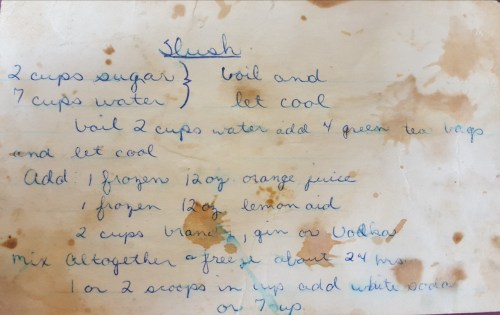 Slush
2 cups sugar } boil and
7 cups water } let cool
boil 2 cups water add 4 green tea bags
and let cool
Add 1 frozen 12 oz orange juice
1 frozen 12 oz lemon aid
2 cups brandy, gin or Vodka
mix altogether - freeze about 24 hrs
1 or 2 scoops in cup add white soda
or 7 up